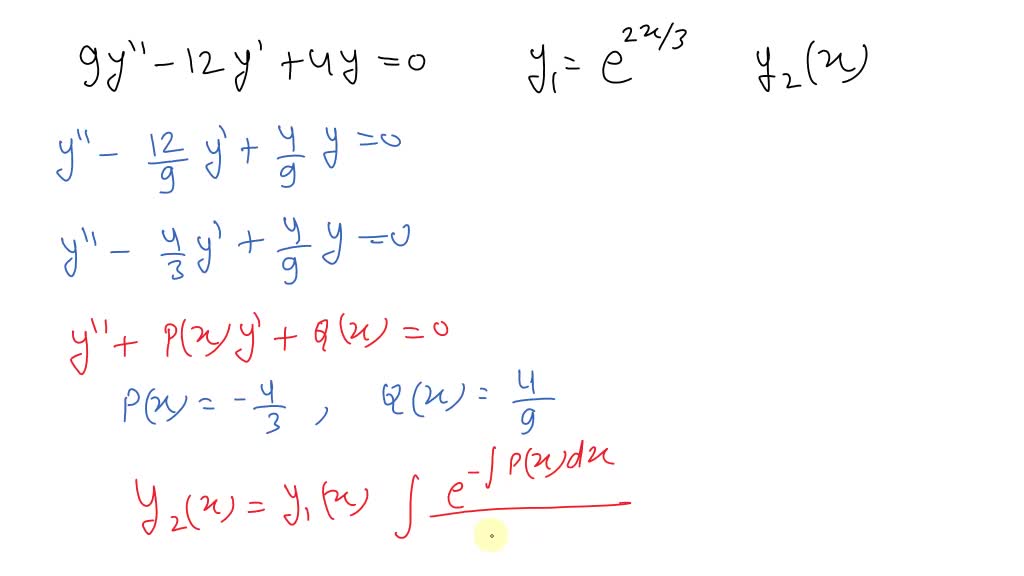 9y'' - 12y' + 4y = 0 y₁ = e^{2x/3} y₂(x)
y'' - 12/9 y' + 4/9 y = 0
y'' - 4/3 y' + 4/9 y = 0
y'' + P(x)y' + Q(x) = 0
P(x) = -4/3 , Q(x) = 4/9
y₂(x) = y₁(x) ∫ e^{-∫P(x)dx}